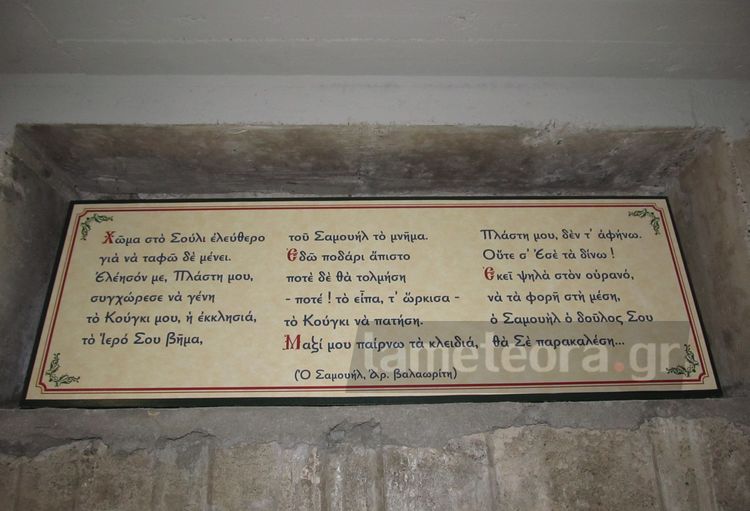 Χῶμα στὸ Σούλι ἐλεύθερο
γιὰ νὰ ταφῶ δὲ μένει.
Ἐλέησόν με, Πλάστη μου,
συγχώρεσε νὰ γένη
τὸ Κούγκι μου, ἡ ἐκκλησιά,
τὸ Ἱερό Σου βῆμα,
τοῦ Σαμουὴλ τὸ μνῆμα.
Ἐδῶ ποδάρι ἄπιστο
ποτὲ δὲ θὰ τολμήση
- ποτέ ! τὸ εἶπα, τ' ὥρκισα -
τὸ Κούγκι νὰ πατήση.
Μαζί μου παίρνω τὰ κλειδιά,
Πλάστη μου, δὲν τ' ἀφήνω.
Οὔτε σ' Ἐσὲ τὰ δίνω !
Ἐκεῖ ψηλὰ στὸν οὐρανό,
νὰ τὰ φορῆ στὴ μέση,
ὁ Σαμουὴλ ὁ δοῦλος Σου
θὰ Σὲ παρακαλέση...
(Ὁ Σαμουήλ, Ἀρ. Βαλαωρίτη)
tameteora.gr